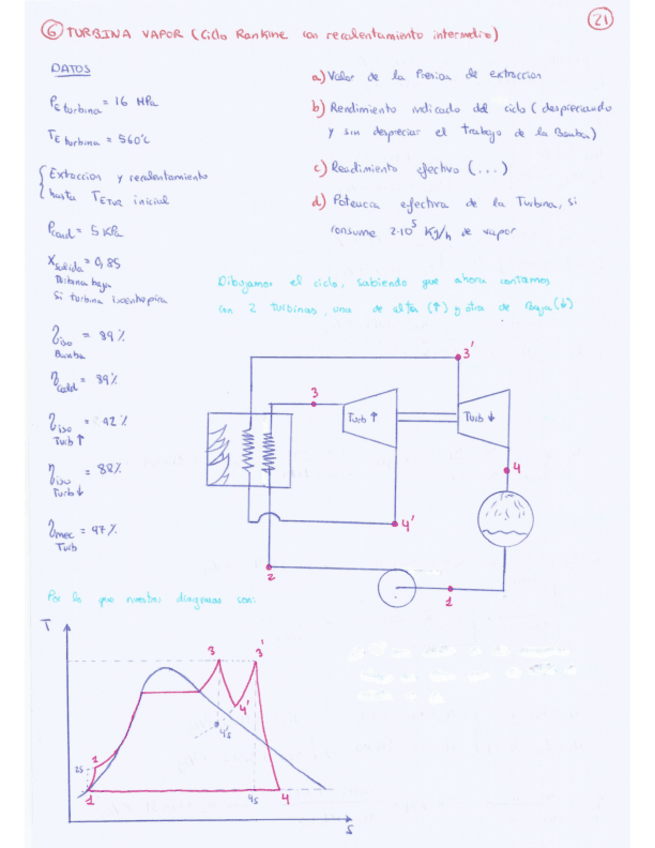 21
⑥ TURBINA VAPOR (Ciclo Rankine con recalentamiento intermedio)
DATOS
P E turbina = 16 MPa
T E turbina = 560ºC
{ Extraccion y recalentamiento
hasta T ETUR inicial
P cond = 5 KPa
X salida = 0,85
Turbina baja
Si turbina isoentropica
η iso = 89 %
Bomba
η cald = 89%
η iso = 92 %
Turb ↑
η iso = 88%
Turb ↓
η mec = 97 %
Turb
a) Valor de la Presion de extraccion
b) Rendimiento indicado del ciclo (despreciando
y sin despreciar el trabajo de la Bomba)
c) Rendimiento efectivo (...)
d) Potencia efectiva de la Turbina, si
consume 2·10⁵ Kg/h de vapor
Dibujamos el ciclo, sabiendo que ahora contamos
con 2 turbinas, una de alta (↑) y otra de baja (↓)
3'
3
Turb ↑
Turb ↓
4
4'
2
1
Por lo que nuestros diagramas son:
T
3
3'
4'
4's
2
2s
1
4s
4
s